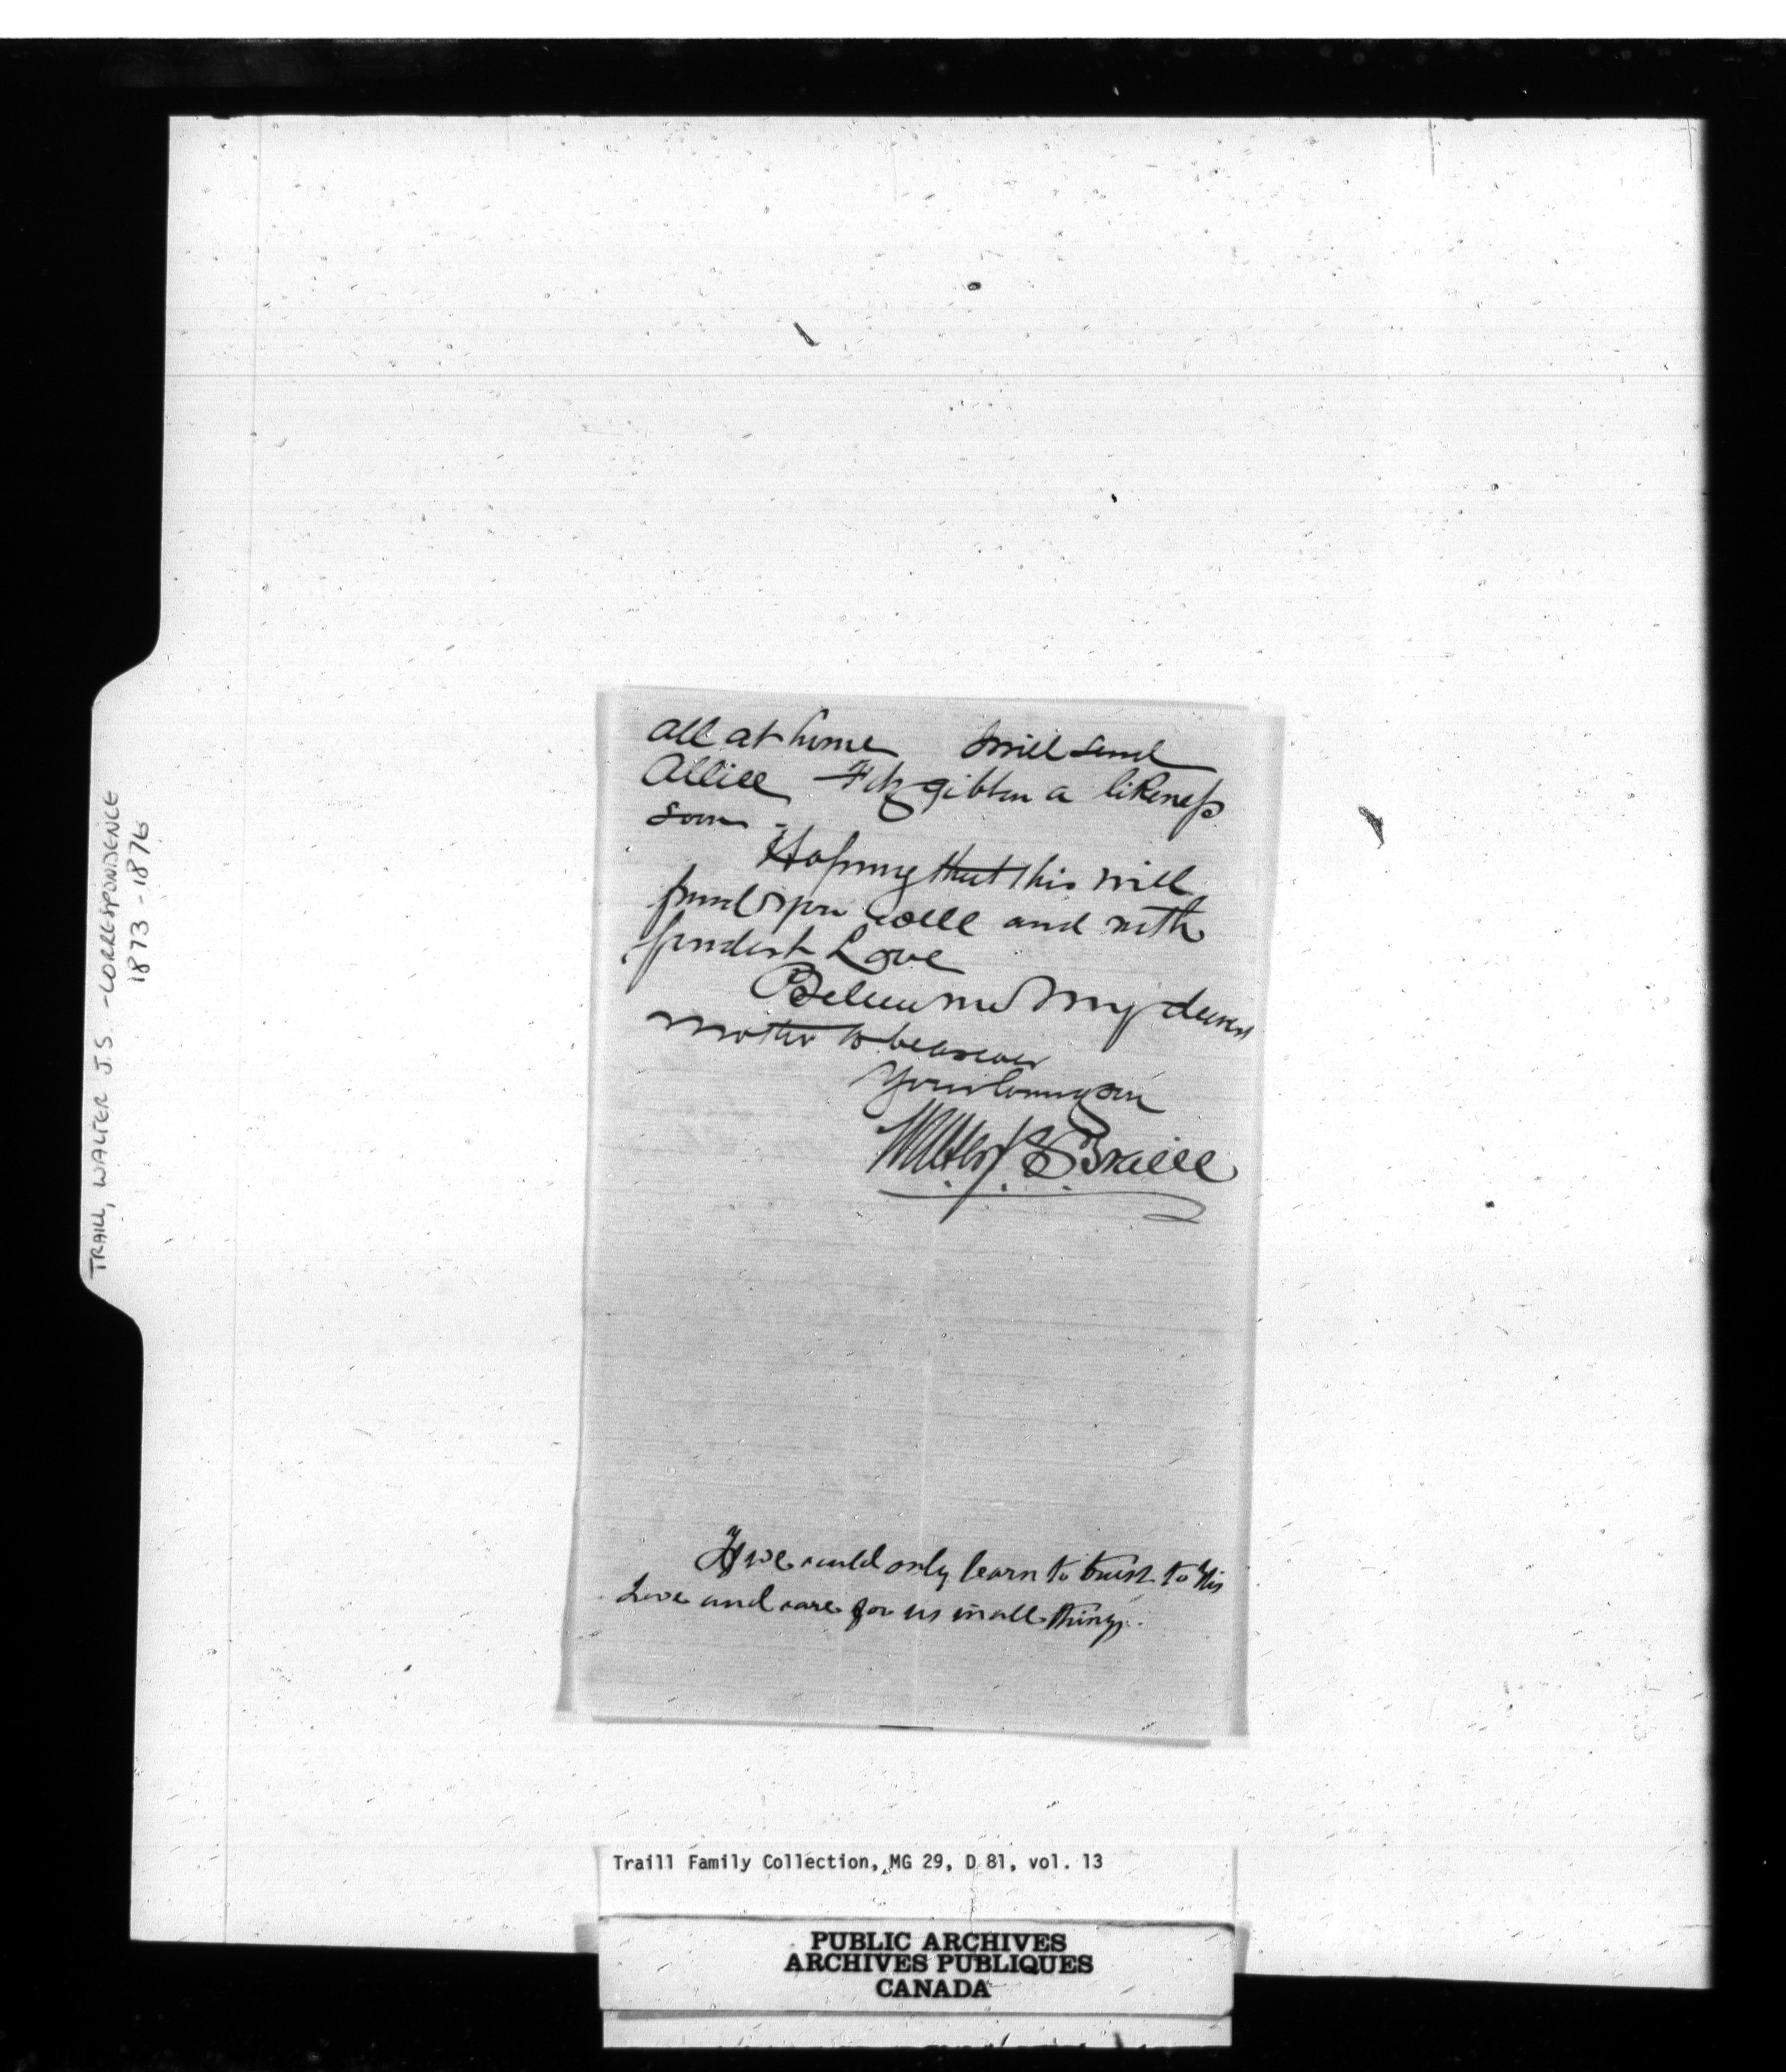 TRAILL, WALTER J.S. - CORRESPONDENCE
1873-1876
all at home I will send
Alliee Fitzgibbon a likeness
soon.
Hoping that this will
find you well and with
fondest Love
Believe me My dearest
Mother to be as ever
Your loving son
Walter J. S. Traill
If we could only learn to trust to His
Love and care for us in all things.
Traill Family Collection, MG 29, D 81, vol. 13
PUBLIC ARCHIVES
ARCHIVES PUBLIQUES
CANADA